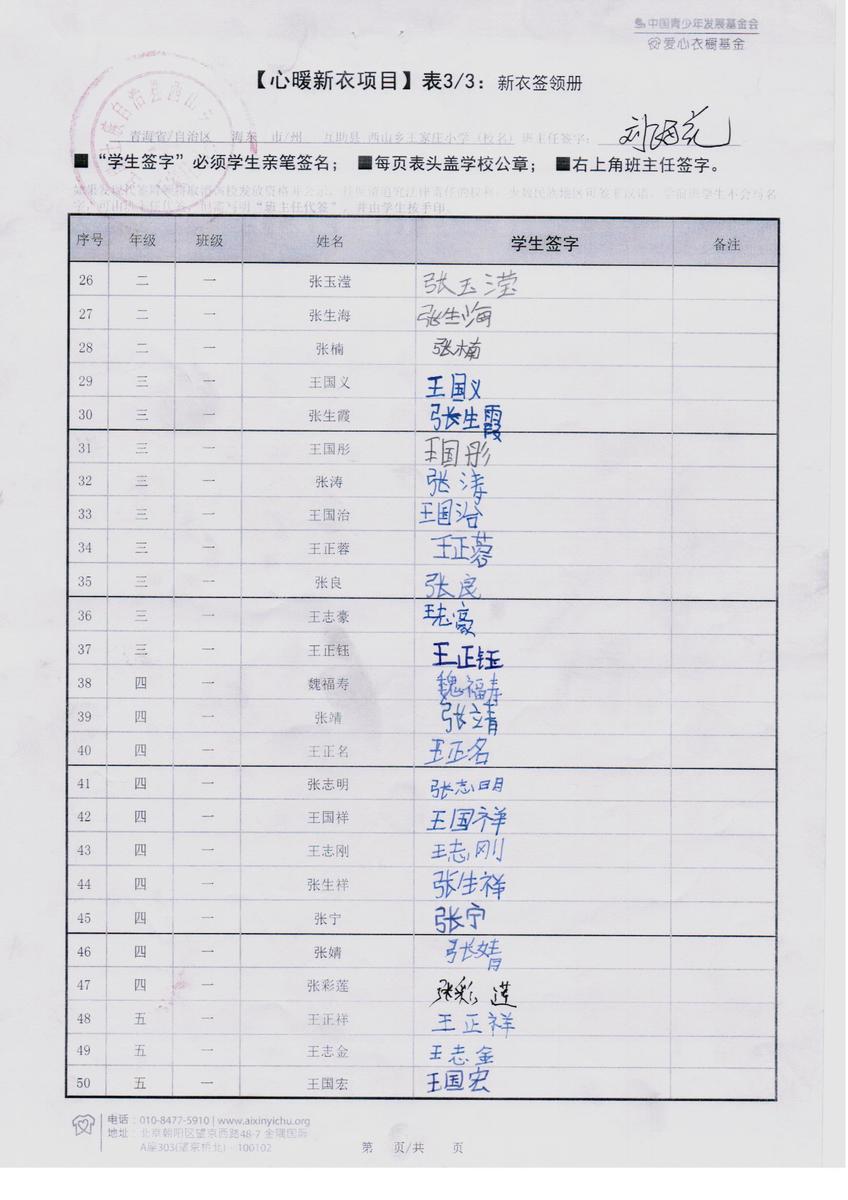 中国青少年发展基金会
爱心衣橱基金
【心暖新衣项目】表3/3：新衣签领册
青海省/自治区 海东 市/州 互助县 西山乡王家庄小学（校名）班主任签字：
■“学生签字”必须学生亲笔签名； ■每页表头盖学校公章； ■右上角班主任签字。
字，可由班主任代签，但需写明“班主任代签”，并由学生按手印。
序号 年级 班级 姓名 学生签字 备注
26 二 一 张玉滢 张玉滢
27 二 一 张生海 张生海
28 二 一 张楠 张楠
29 三 一 王国义 王国义
30 三 一 张生霞 张生霞
31 三 一 王国彤 王国彤
32 三 一 张涛 张涛
33 三 一 王国治 王国治
34 三 一 王正蓉 王正蓉
35 三 一 张良 张良
36 三 一 王志豪 王志豪
37 三 一 王正钰 王正钰
38 四 一 魏福寿 魏福寿
39 四 一 张靖 张靖
40 四 一 王正名 王正名
41 四 一 张志明 张志明
42 四 一 王国祥 王国祥
43 四 一 王志刚 王志刚
44 四 一 张生祥 张生祥
45 四 一 张宁 张宁
46 四 一 张婧 张婧
47 四 一 张彩莲 张彩莲
48 五 一 王正祥 王正祥
49 五 一 王志金 王志金
50 五 一 王国宏 王国宏
电话：010-8477-5910 | www.aixinyichu.org
地址：北京朝阳区望京西路48-7 金隅国际
A座303(望京桥北)·100102
第 页/共 页